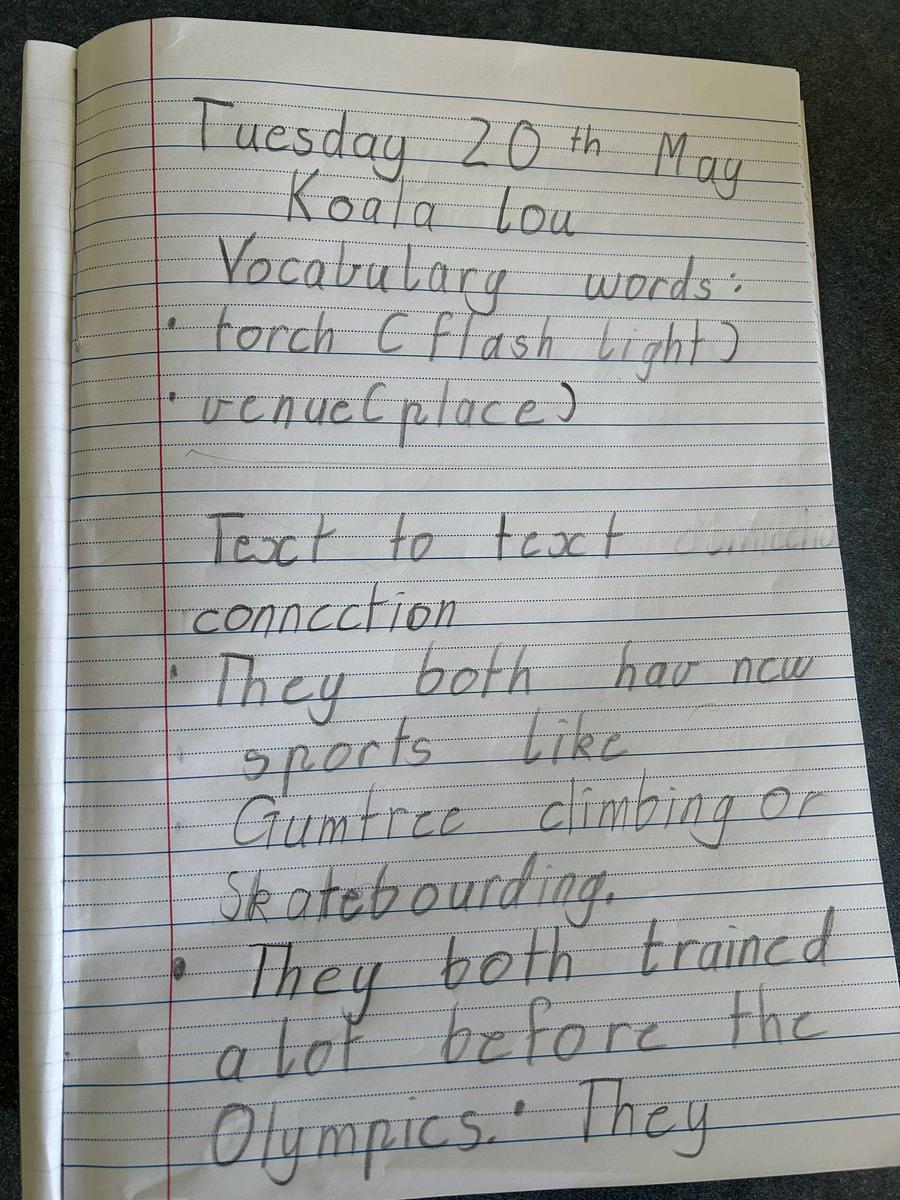 Tuesday 20th May
Koala lou
Vocabulary words:
• torch (flash light)
• venue(place)
Text to text
connection
• They both hav new
sports like
Gumtree climbing or
Skatebourding.
• They both trained
a lot before the
Olympics.• They